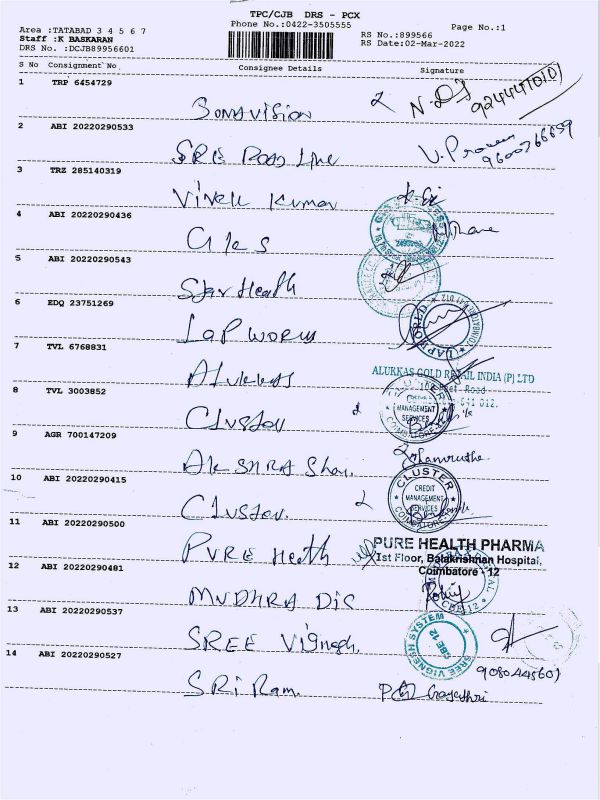 TPC/CJB DRS - PCX
Area :TATABAD 3 4 5 6 7
Phone No.:0422-3505555
Page No.:1
Staff :K BASKARAN
RS No.:899566
DRS No. :DCJB89956601
RS Date:02-Mar-2022
S No Consignment No.
Consignee Details
Signature
1 TRP 6454729
Sonavision
2 ABI 20220290533
SREE
3 TRZ 285140319
Vivek Kumar
4 ABI 20220290436
5 ABI 20220290543
Star Health
6 EDQ 23751269
LAPWORLD
7 TVL 6768831
ALUKKAS GOLD RETAIL INDIA (P) LTD
8 TVL 3003852
CLUSTER
MANAGEMENT
SERVICES
COIMBATORE
9 AGR 700147209
10 ABI 20220290415
CLUSTER
CREDIT
MANAGEMENT
SERVICES
COIMBATORE
11 ABI 20220290500
PURE Health
PURE HEALTH PHARMA
1st Floor, Balakrishnan Hospital,
Coimbatore - 12
12 ABI 20220290481
MUDHRA Dis
CBE 12
13 ABI 20220290537
SREE Vignesh.
SREE VIGNESH SYSTEM
CBE 12
14 ABI 20220290527
9080445607
SRi Ram.
Gayathri